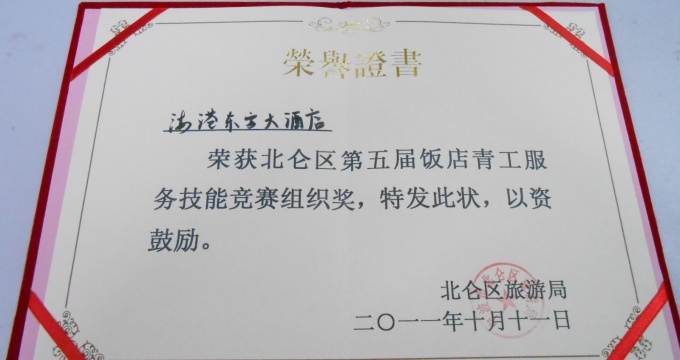 榮譽證書
海港东方大酒店
荣获北仑区第五届饭店青工服
务技能竞赛组织奖，特发此状，以资
鼓励。
北仑区旅游局
二〇一一年十月十一日